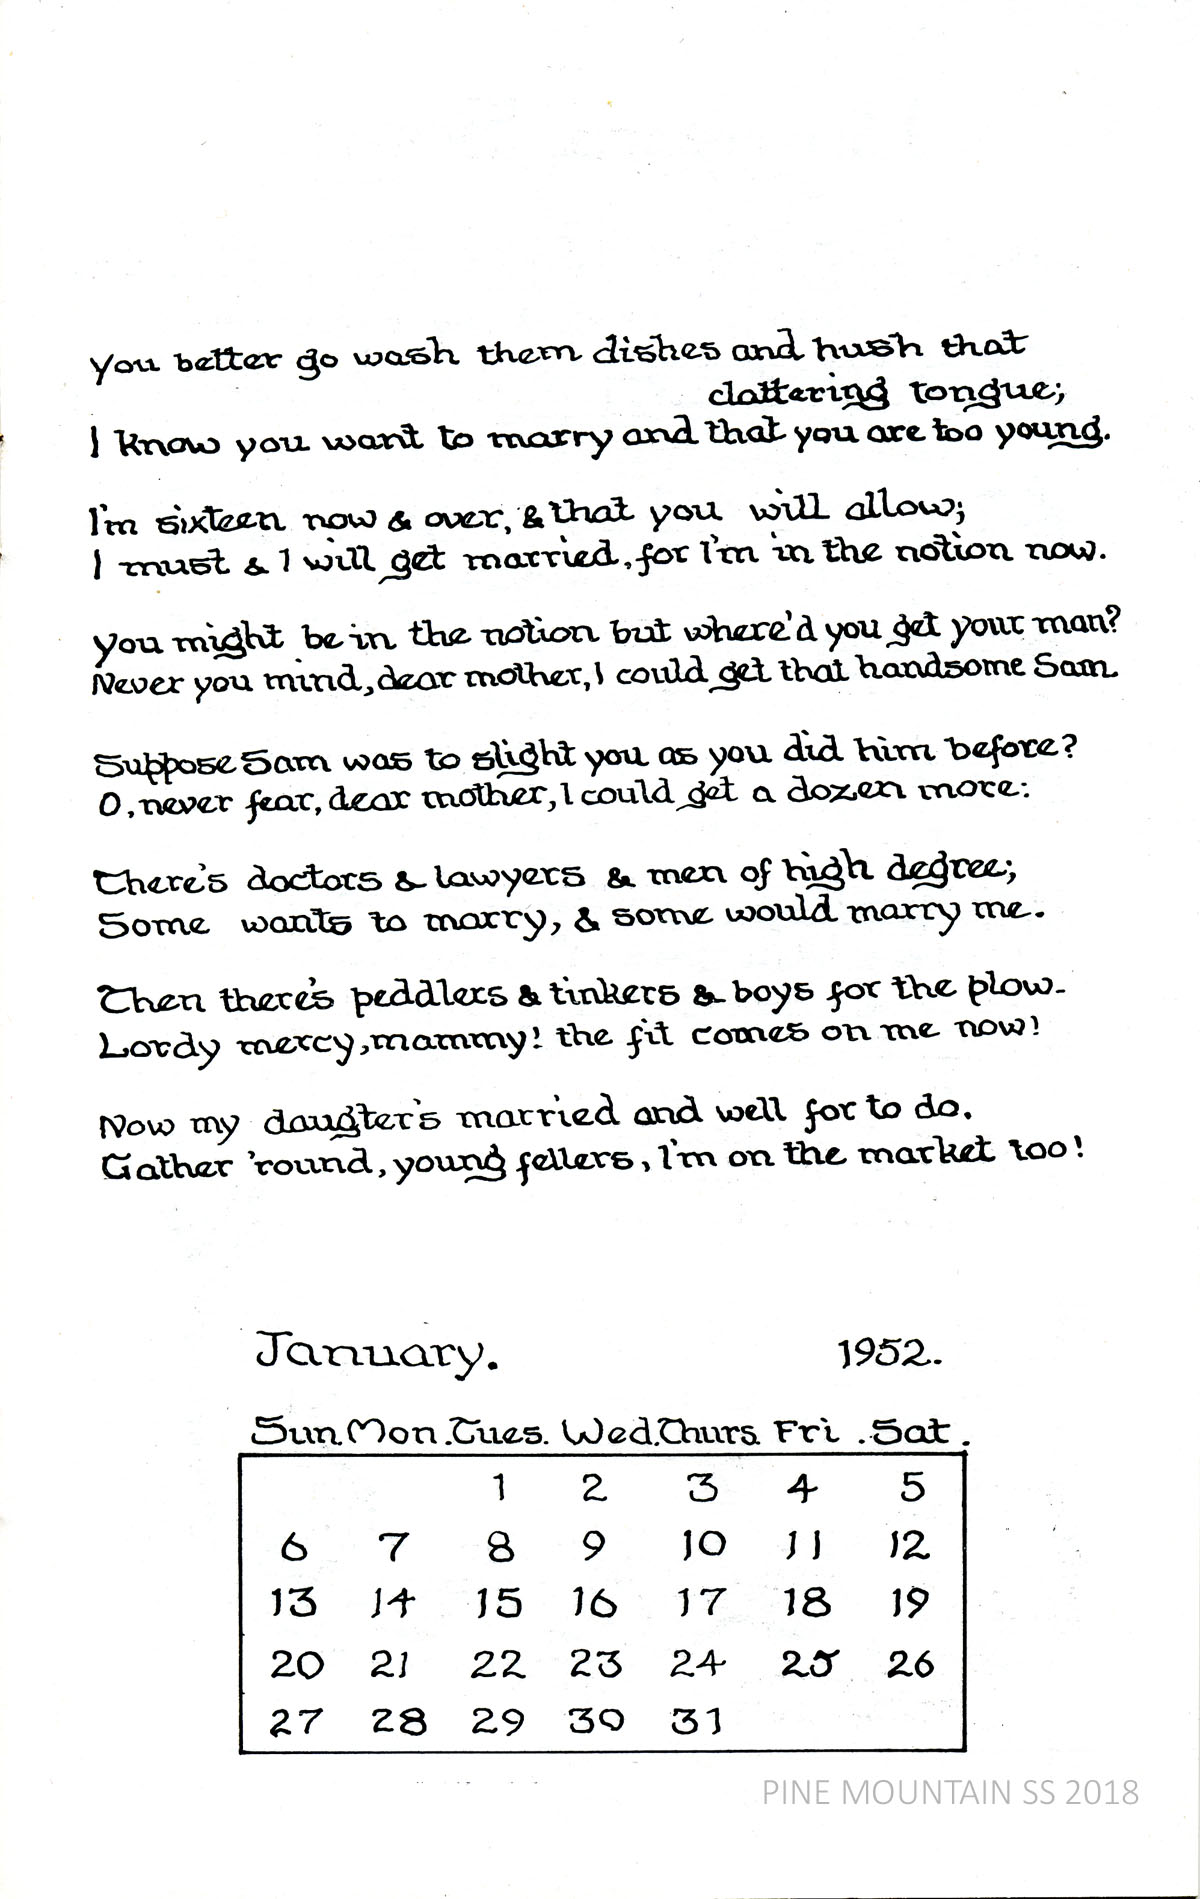 You better go wash them dishes and hush that
clattering tongue;
I know you want to marry and that you are too young.
I'm sixteen now & over, & that you will allow;
I must & I will get married, for I'm in the notion now.
You might be in the notion but where'd you get your man?
Never you mind, dear mother, I could get that handsome Sam
Suppose Sam was to slight you as you did him before?
O, never fear, dear mother, I could get a dozen more:
There's doctors & lawyers & men of high degree;
Some wants to marry, & some would marry me.
Then there's peddlers & tinkers & boys for the plow-
Lordy mercy, mammy! the fit comes on me now!
Now my daugter's married and well for to do.
Gather 'round, young fellers, I'm on the market too!
January. 1952.
Sun. Mon. Tues. Wed. Thurs. Fri. Sat.
1 2 3 4 5
6 7 8 9 10 11 12
13 14 15 16 17 18 19
20 21 22 23 24 25 26
27 28 29 30 31
PINE MOUNTAIN SS 2018